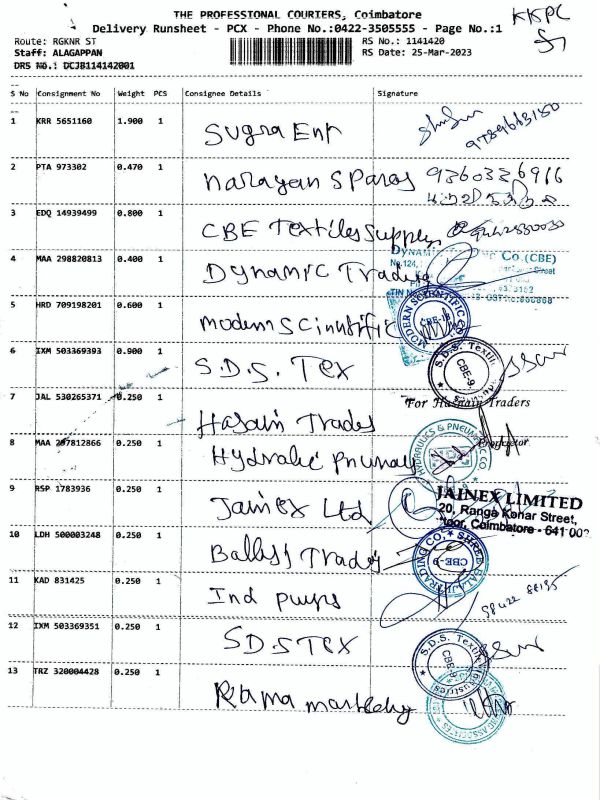 THE PROFESSIONAL COURIERS, Coimbatore
KKPC
Delivery Runsheet - PCX - Phone No.:0422-3505555 - Page No.:1
Route: RGKNR ST
RS No.: 1141420
Staff: ALAGAPPAN
RS Date: 25-Mar-2023
DRS No.: DCJB114142001
S No Consignment No Weight PCS Consignee Details Signature
1 KRR 5651160 1.900 1 Sugra Ent
2 PTA 973302 0.470 1 Narayan S Paras 9360336916
3 EDQ 14939499 0.800 1 CBE Textiles Supplys
DYNAMIC CO.(CBE)
4 MAA 298820813 0.400 1 Dynamic Trading
5 HRD 709198201 0.600 1 Modern Scinutific
MODERN SCIENTIFIC CO
6 IXM 503369393 0.900 1 S.D.S. Tex
S.D.S. Textile Industries CBE-9.
7 JAL 530265371 0.250 1 Hasain Trades
For Hasnain Traders
Proprietor
8 MAA 297812866 0.250 1 Hydralic
HYDRAULICS & PNEUMATIC CO
9 RSP 1783936 0.250 1 Jainex Ltd
JAINEX LIMITED
20, Ranga Konar Street,
Coimbatore - 641 009
10 LDH 500003248 0.250 1 Trades
SHREE BALAJI TRADING CO. CBE-9
11 KAD 831425 0.250 1 Ind pumps
12 IXM 503369351 0.250 1 SDS TEX
S.D.S. Textile Industries CBE-9
13 TRZ 320004428 0.250 1 Rama